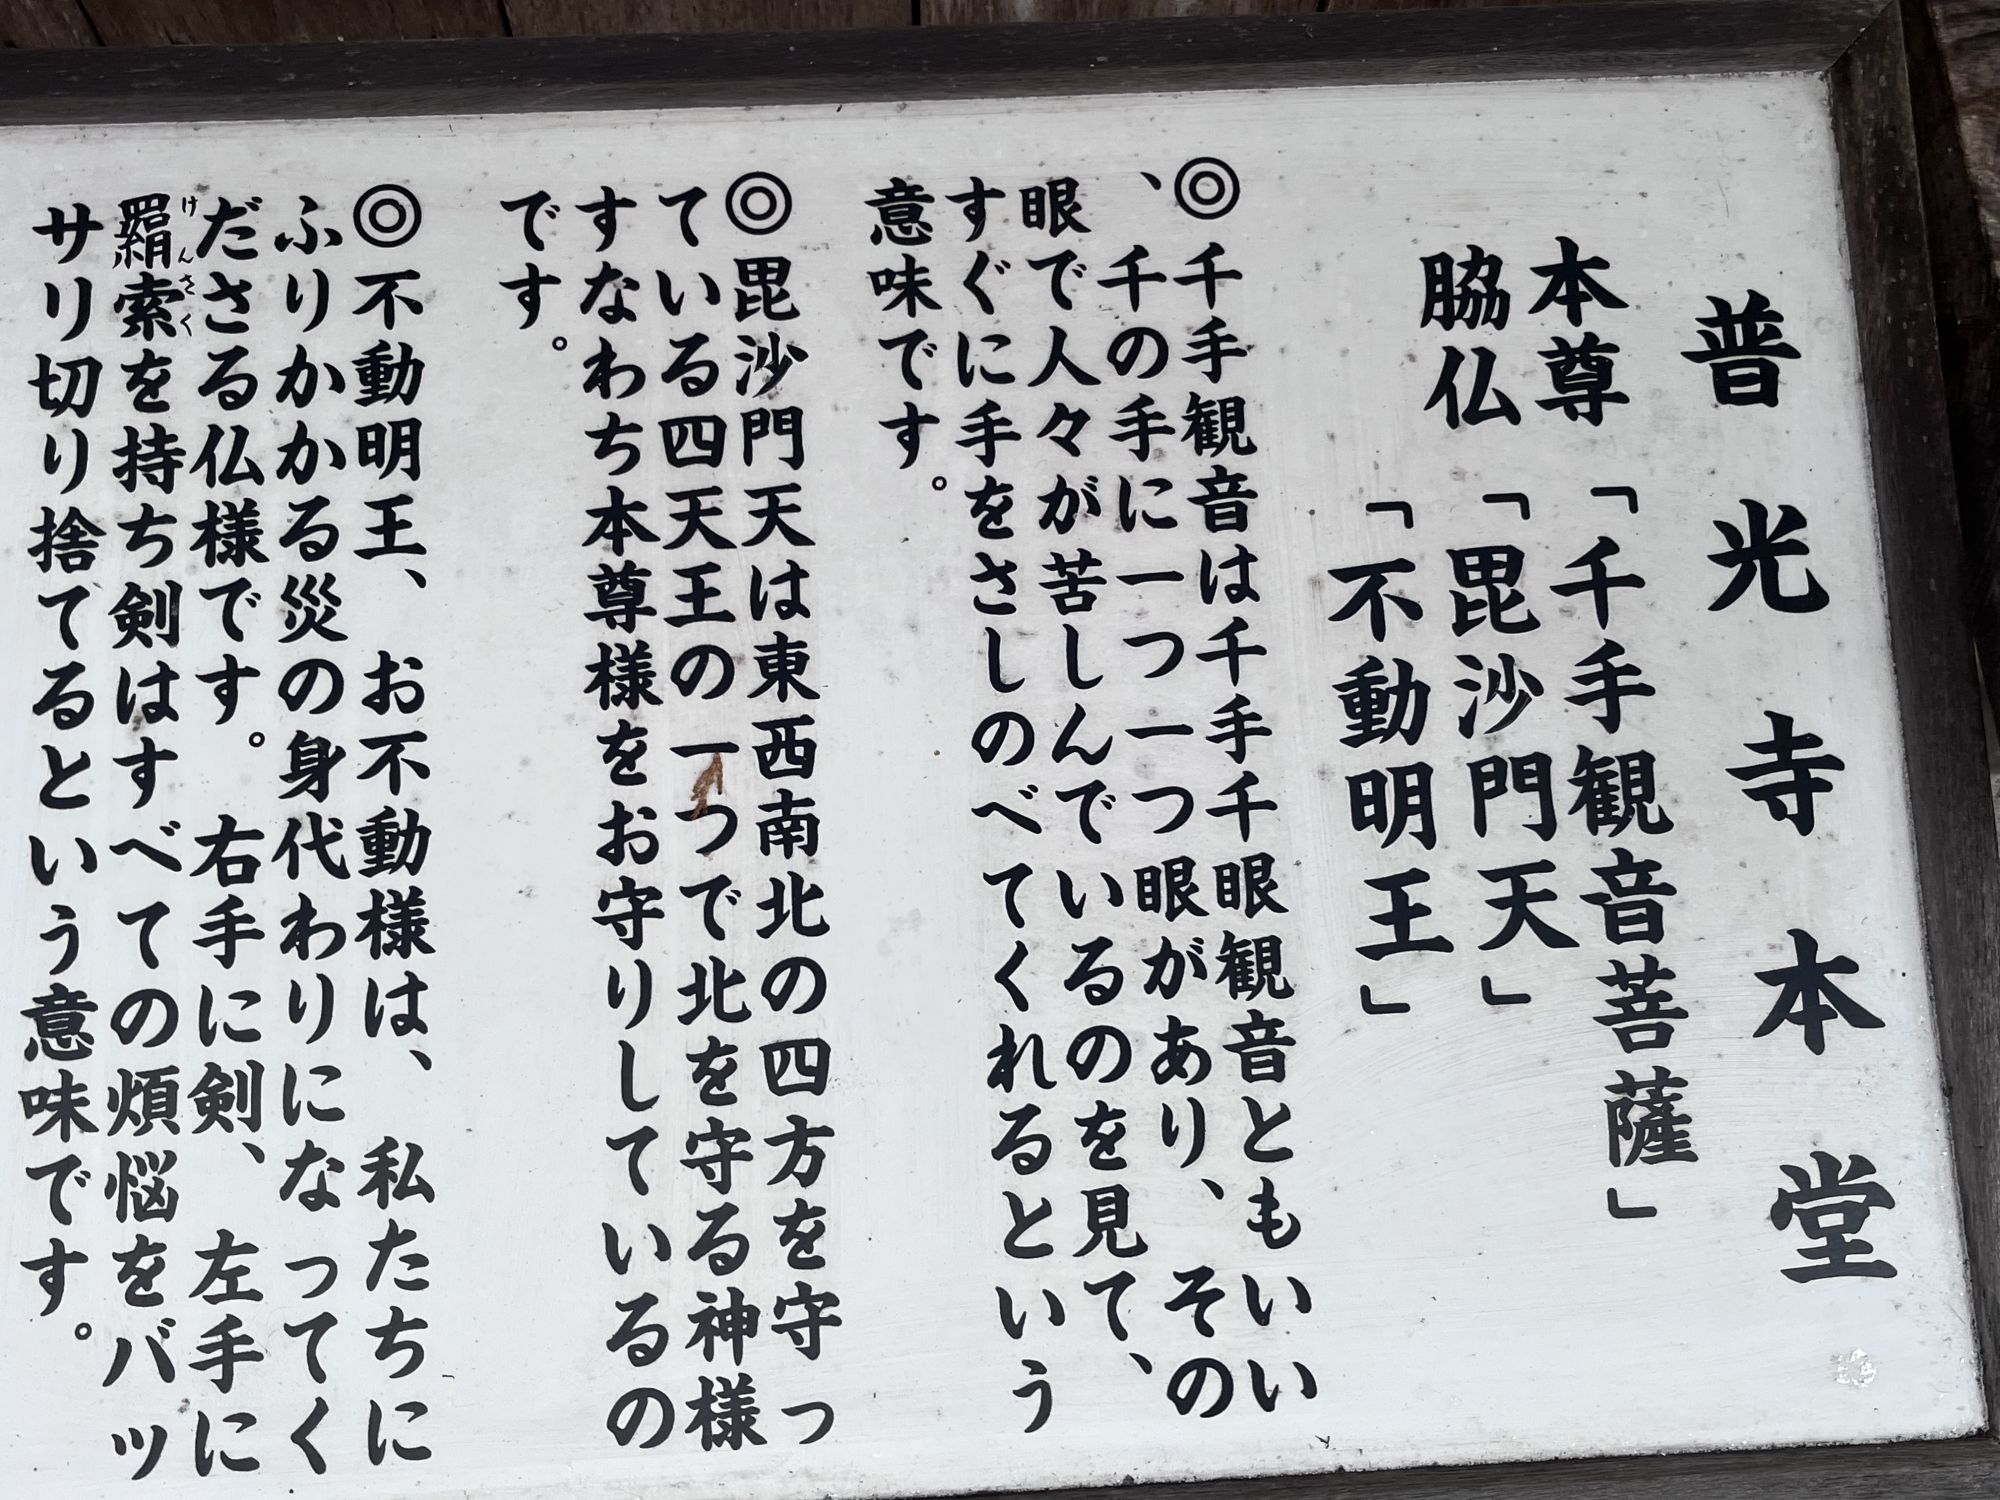 普光寺本堂
本尊「千手観音菩薩」
脇仏「毘沙門天」
「不動明王」
◎千手観音は千手千眼観音ともいい
、千の手に一つ一つ眼があり、その
眼で人々が苦しんでいるのを見て、
すぐに手をさしのべてくれるという
意味です。
◎毘沙門天は東西南北の四方を守っ
ている四天王の一つで北を守る神様
すなわち本尊様をお守りしているの
です。
◎不動明王、お不動様は、私たちに
ふりかかる災の身代わりになってく
ださる仏様です。右手に剣、左手に
羂索を持ち剣はすべての煩悩をバッ
けんさく
サリ切り捨てるという意味です。